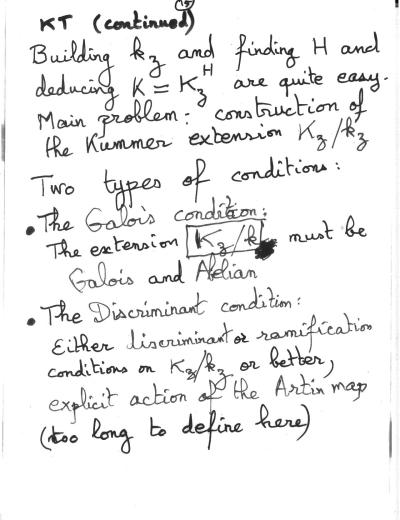 15
KT (continued)
Building k_z and finding H and
deducing K = K_z^H are quite easy.
Main problem: construction of
the Kummer extension K_z/k_z
Two types of conditions:
• The Galois condition:
The extension K_z/k must be
Galois and Abelian
• The Discriminant condition:
Either discriminant or ramification
conditions on K_z/k_z or better,
explicit action of the Artin map
(too long to define here)